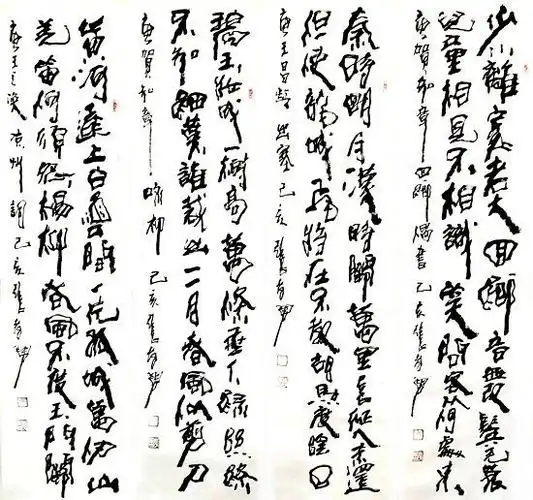 少小離家老大回鄉音無改鬢毛衰
兒童相見不相識笑問客從何處來
唐賀知章回鄉偶書己亥
秦時明月漢時關萬里長征人未還
但使龍城飛將在不教胡馬度陰山
唐王昌齡出塞己亥
碧玉妝成一樹高萬條垂下綠絲絛
不知細葉誰裁出二月春風似剪刀
唐賀知章咏柳己亥
黃河遠上白雲間一片孤城萬仞山
羌笛何須怨楊柳春風不度玉門關
唐王之渙涼州詞己亥